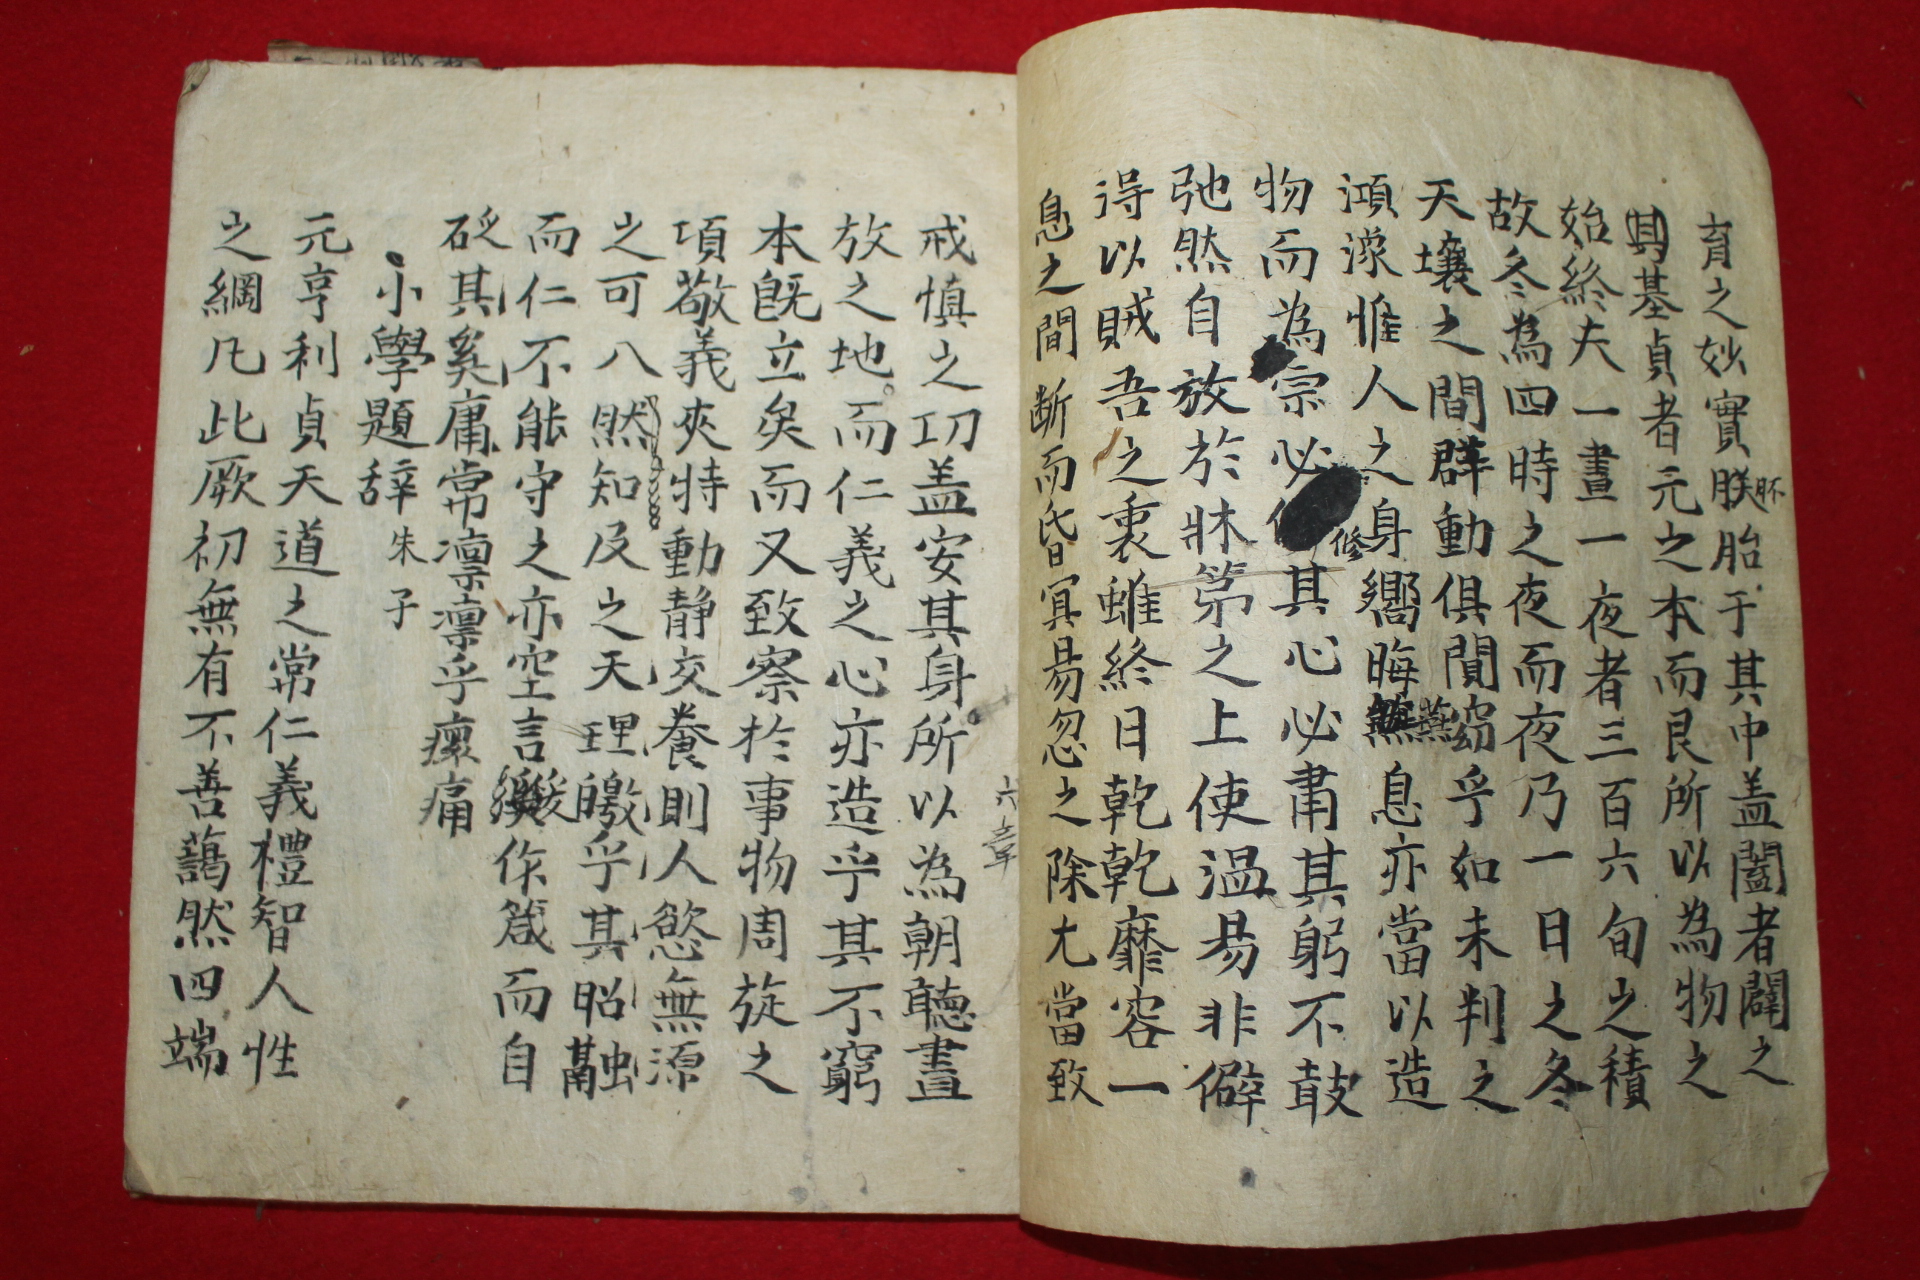 育之妙實朕胚胎于其中盖闔者闢之
其基貞者元之本而艮所以為物之
始終夫一晝一夜者三百六旬之積
故冬為四時之夜而夜乃一日之冬
天壤之間群動俱閴窈乎如未判之
澒濛惟人之身嚮晦燕息亦當以造
物而為宗必修其心必肅其躬不敢
弛然自放於牀第之上使溫易非僻
得以賊吾之衷雖終日乾乾靡容一
息之間断而昏冥易忽之際尤當致
六章
戒慎之功盖安其身所以為朝聽晝
放之地而仁義之心亦造乎其不窮
本旣立矣而又致察於事物周旋之
項敬義夾特動静交養則人慾無源
之可八然知及之天理皦乎其昭融
而仁不能守之亦空言緩作箴而自
砭其奚庸常凜凜乎瘝痛
小學題辞 朱子
元亨利貞天道之常仁義禮智人性
之綱凡此厥初無有不善藹然四端